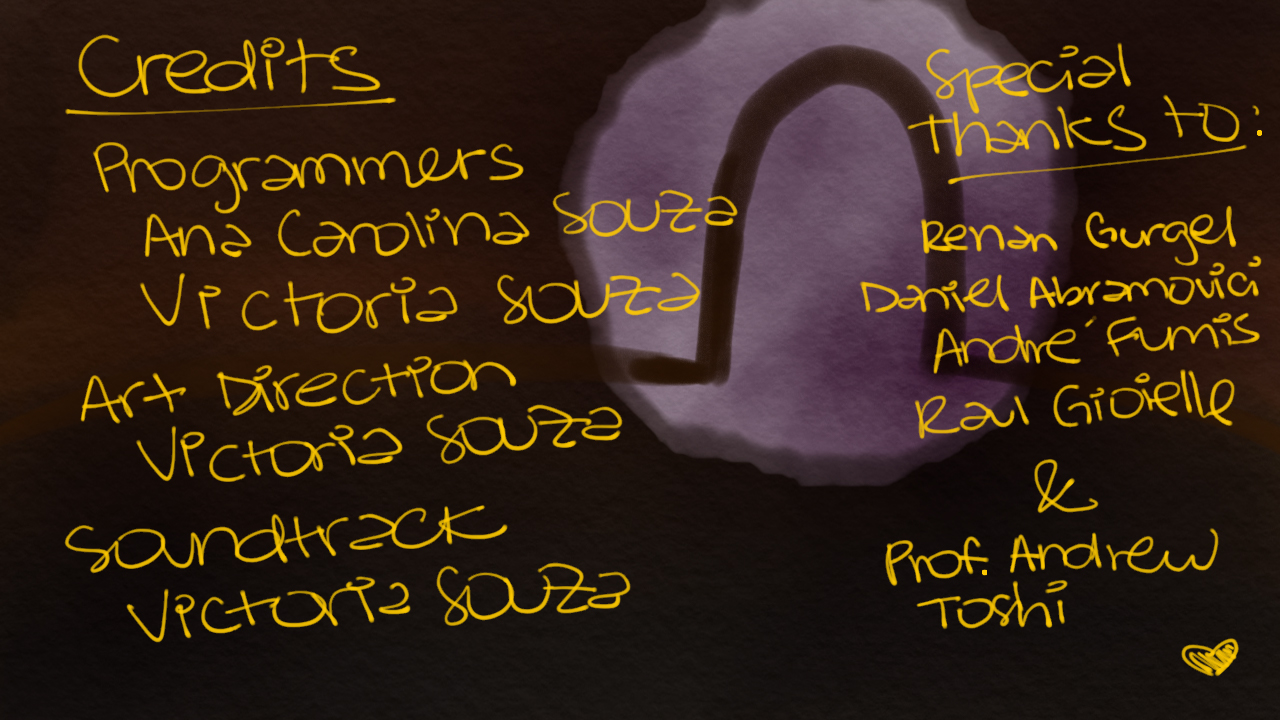 Credits
Programmers
Ana Carolina Souza
Victoria Souza
Art Direction
Victoria Souza
Soundtrack
Victoria Souza
Special
Thanks to:
Renan Gurgel
Daniel Abramovici
André Fumis
Raul Gioielle
&
Prof. Andrew
Toshi